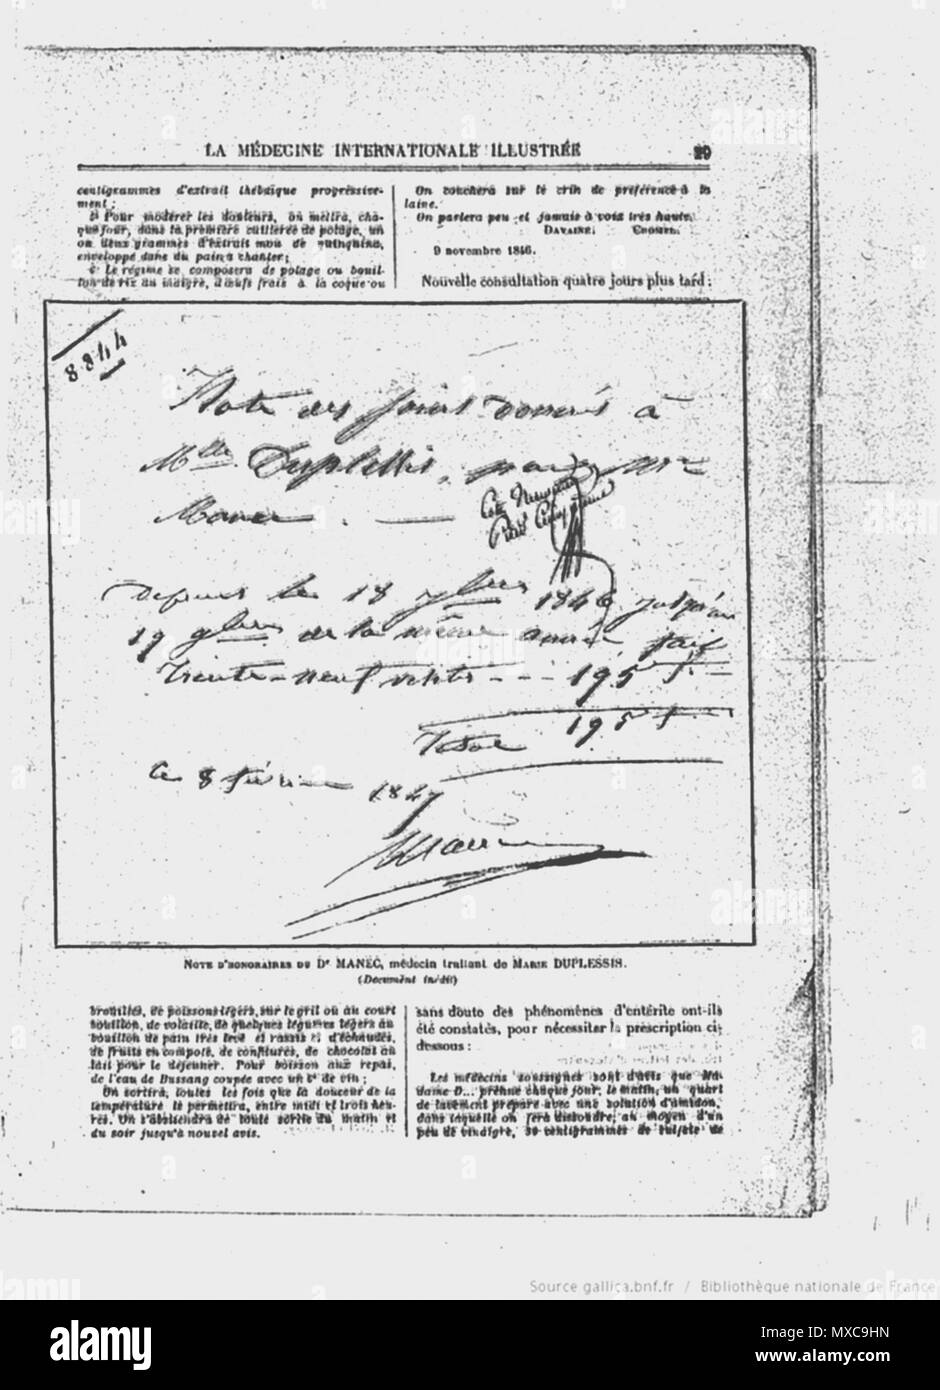 LA MÉDECINE INTERNATIONALE ILLUSTRÉE 29
centigrammes d'extrait thébaïque progressive-
ment;
Pour modérer les douleurs, on mettra, cha-
que jour, dans la première cuillerée de potage, un
ou deux grammes d'extrait mou de quinquina,
enveloppé dans du pain à chanter;
4° Le régime se composera de potage ou bouil-
lon de riz au maigre, d'œufs frais à la coque ou
On couchera sur le crin de préférence à la
laine.
On parlera peu et jamais à voix très haute.
DAVAINE. CHOMEL.
9 novembre 1846.
Nouvelle consultation quatre jours plus tard:
8844
Note des soins donnés à
Mlle Duplessis, par Mr
Manec. —
Depuis le 18 9bre 1846 jusqu'au
19 de la même année, fait
trente-neuf visites --- 195 f. —
Total 195 f. —
Ce 8 février 1847
Manec
NOTE D'HONORAIRES DU Dr MANEC, médecin traitant de MARIE DUPLESSIS.
(Document inédit)
brouillés, de poissons légers, sur le gril ou au court
bouillon, de volaille, de quelques légumes légers au
bouillon de pain très levé et rassis et d'échaudés,
de fruits en compote, de confitures, de chocolat au
lait pour le déjeuner. Pour boisson aux repas,
de l'eau de Bussang coupée avec un de vin;
On sortira, toutes les fois que la douceur de la
température le permettra, entre midi et trois heu-
res. On s'abstiendra de toute sortie du matin et
du soir jusqu'à nouvel avis.
sans doute des phénomènes d'entérite ont-ils
été constatés, pour nécessiter la prescription ci-
dessous:
Les médecins soussignés sont d'avis que Ma-
dame D... prenne chaque jour, le matin, un quart
de lavement préparé avec une solution d'amidon,
dans laquelle on fera dissoudre, au moyen d'un
peu de vinaigre, 5e centigrammes de sulfate de
Source gallica.bnf.fr / Bibliothèque nationale de France
alamy
Image ID: MXC9HN
www.alamy.com